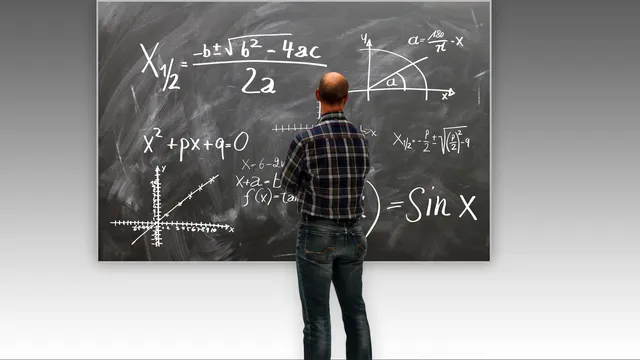 X₁/₂ = (-b ± √(b² - 4ac)) / 2a
y
a = 180/π · x
a
x
x² + px + q = 0
x
X₁/₂ = -p/2 ± √((p/2)² - q)
x - 6 - 2
x + a - b
f(x) = ta
) = Sin x
y
x